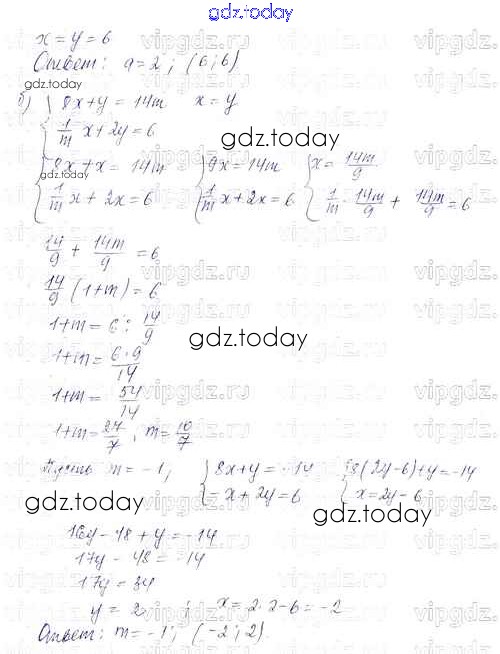 gdz.today
x = y = 6
Ответ: a = 2; (6; 6)
gdz.today
б) { 8x + y = 14m   x = y
{ 1/m x + 2y = 6
gdz.today
{ 8x + x = 14m   { 9x = 14m   { x = 14m/9
{ 1/m x + 2x = 6   { 1/m x + 2x = 6   { 1/m · 14m/9 + 14m/9 = 6
14/9 + 14m/9 = 6
14/9 (1 + m) = 6
1 + m = 6 : 14/9
gdz.today
1 + m = 6·9/14
1 + m = 54/14
1 + m = 27/7; m = 10/7
Пусть m = -1; { 8x + y = -14   { 8(2y - 6) + y = -14
{ -x + 2y = 6   { x = 2y - 6
gdz.today
gdz.today
16y - 48 + y = -14
17y - 48 = -14
17y = 34
y = 2; x = 2·2 - 6 = -2
Ответ: m = -1; (-2; 2)
gdz.today